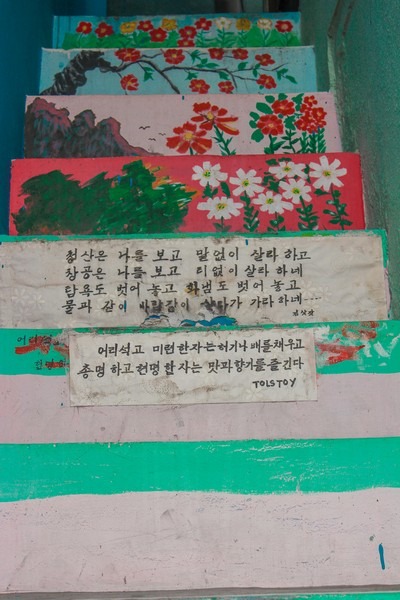 청산은 나를 보고 말없이 살라 하고
창공은 나를 보고 티없이 살라 하네
탐욕도 벗어 놓고 화냄도 벗어 놓고
물과 같이 바람같이 살다가 가라 하네----
어리석
어리석고 미련한자는 허기나 배를채우고
총명하고 현명한자는 맛과향기를 즐긴다
TOLSTOY